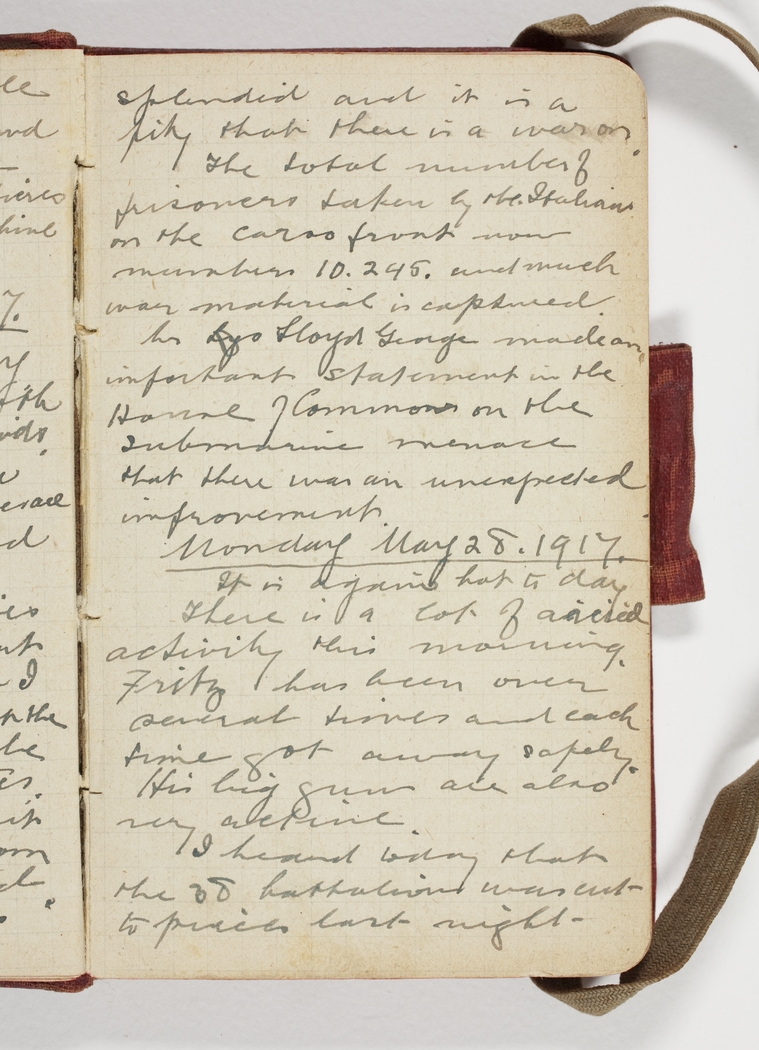 splendid and it is a
pity that there is a war on.
The total number of
prisoners taken by the Italians
on the carso front now
numbers 10.245. and much
war material is captured.
Lloyd George made an
important statement in the
House of Commons on the
submarine menace
that there was an unexpected
improvement.
Monday May 28. 1917.
It is again hot to day
There is a lot of aerial
activity this morning.
Fritz has been over
several times and each
time got away safely.
His big guns are also
very active
I heard today that
the 38 battalion was cut
to pieces last night-
lle
nd
hine
7.
y
th
d
I
the
be
it
om